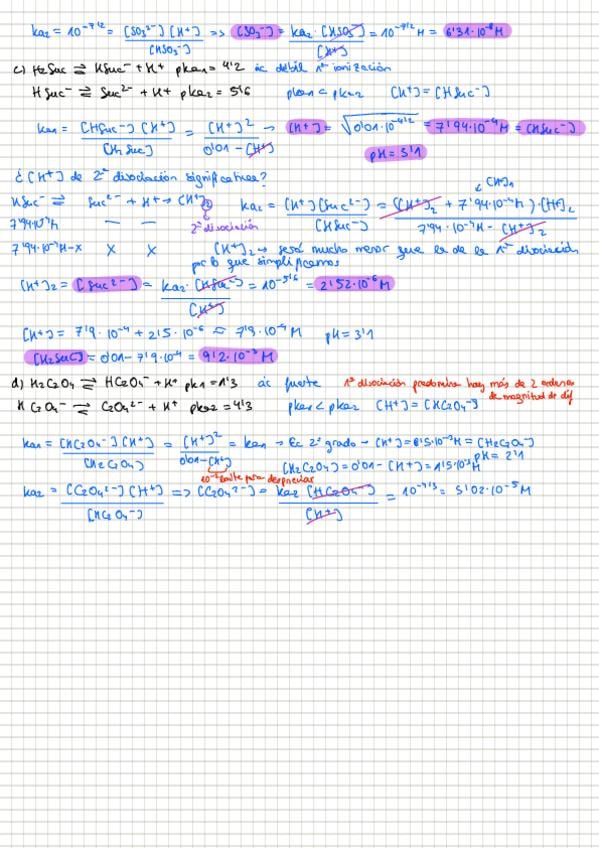 ka2 = 10^-7'2 = [SO3^2-] [H+] / [HSO3^-] => [SO3^-] = ka2 · [HSO3^-] / [H+] = 10^-7'2 M = 6'31·10^-8 M
c) H2Suc ⇌ HSuc^- + H+ pka1 = 4'2 ác débil 1ª ionización
HSuc^- ⇌ Suc^2- + H+ pka2 = 5'6 pka1 < pka2 [H+] = [HSuc^-]
ka1 = [HSuc^-] [H+] / [H2Suc] = [H+]^2 / 0'01 - [H+] → [H+] = √0'01·10^-4'2 = 7'94·10^-4 M = [HSuc^-]
pH = 3'1
¿[H+] de 2ª disociación significativa?
HSuc^- ⇌ Suc^2- + H+ → [H+]2 ka2 = [H+] [Suc^2-] / [HSuc^-] = ([H+]2 + 7'94·10^-4 M) · [H+]2 / 7'94·10^-4 M - [H+]2
[H+]1
7'94·10^-4 M — — 2ª disociación
7'94·10^-4 - x x x [H+]2 → será mucho menor que la de la 1ª disociación
por lo que simplificamos
[H+]2 = [Suc^2-] = ka2 · [HSuc^-] / [H+] = 10^-5'6 = 2'52·10^-6 M
[H+] = 7'9·10^-4 + 2'5·10^-6 ≈ 7'9·10^-4 M pH = 3'1
[H2Suc] = 0'01 - 7'9·10^-4 = 9'2·10^-3 M
d) H2C2O4 ⇌ HC2O4^- + H+ pk1 = 1'3 ác fuerte 1ª disociación predomina hay más de 2 ordenes
de magnitud de dif
HC2O4^- ⇌ C2O4^2- + H+ pka2 = 4'3 pka1 < pka2 [H+] = [HC2O4^-]
ka1 = [HC2O4^-] [H+] / [H2C2O4] = [H+]^2 / 0'01 - [H+] = ka1 → Ec 2º grado → [H+] = 8'5·10^-3 M = [HC2O4^-]
pH = 2'1
[H2C2O4] = 0'01 - [H+] = 1'5·10^-3 M
ka2 = [C2O4^2-] [H+] / [HC2O4^-] => [C2O4^2-] = ka2 [HC2O4^-] / [H+] = 10^-4'3 = 5'02·10^-5 M